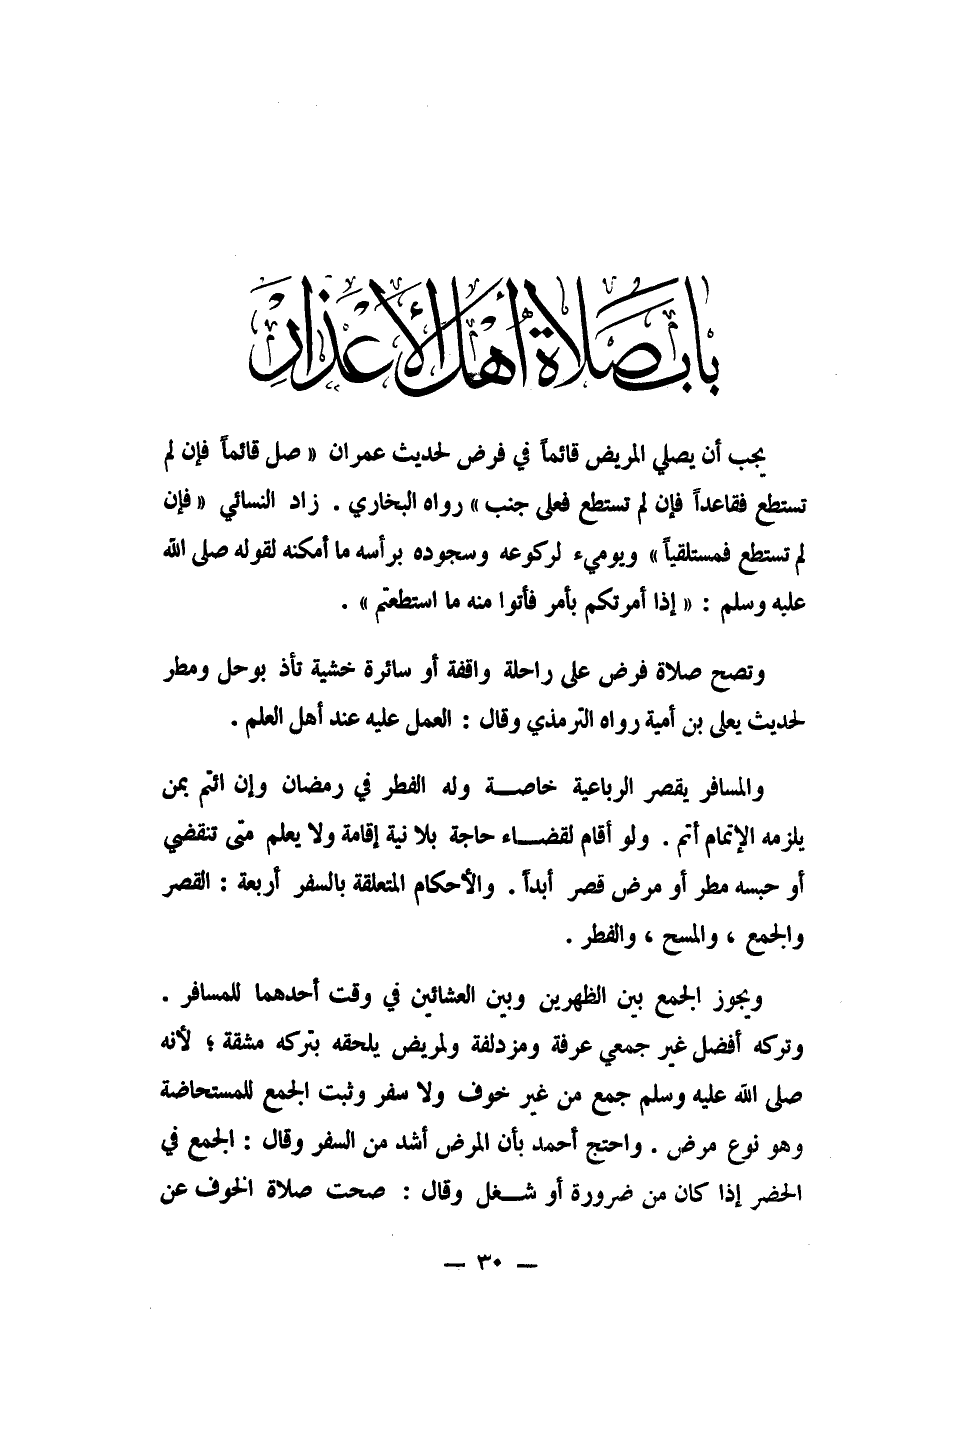 باب صلاة أهل الأعذار
يجب أن يصلي المريض قائماً في فرض لحديث عمران « صل قائماً فإن لم
تستطع فقاعداً فإن لم تستطع فعلى جنب » رواه البخاري . زاد النسائي « فإن
لم تستطع فمستلقياً » ويوميء لركوعه وسجوده برأسه ما أمكنه لقوله صلى الله
عليه وسلم : « إذا أمرتكم بأمر فأتوا منه ما استطعتم » .
وتصح صلاة فرض على راحلة واقفة أو سائرة خشية تأذ بوحل ومطر
لحديث يعلى بن أمية رواه الترمذي وقال : العمل عليه عند أهل العلم .
والمسافر يقصر الرباعية خاصة وله الفطر في رمضان وإن ائتم بمن
يلزمه الإتمام أتم . ولو أقام لقضاء حاجة بلا نية إقامة ولا يعلم متى تنقضي
أو حبسه مطر أو مرض قصر أبداً . والأحكام المتعلقة بالسفر أربعة : القصر
والجمع ، والمسح ، والفطر .
ويجوز الجمع بين الظهرين وبين العشائين في وقت أحدهما للمسافر .
وتركه أفضل غير جمعي عرفة ومزدلفة ولمريض يلحقه بتركه مشقة ؛ لأنه
صلى الله عليه وسلم جمع من غير خوف ولا سفر وثبت الجمع للمستحاضة
وهو نوع مرض . واحتج أحمد بأن المرض أشد من السفر وقال : الجمع في
الحضر إذا كان من ضرورة أو شغل وقال : صحت صلاة الخوف عن
— ٣٠ —